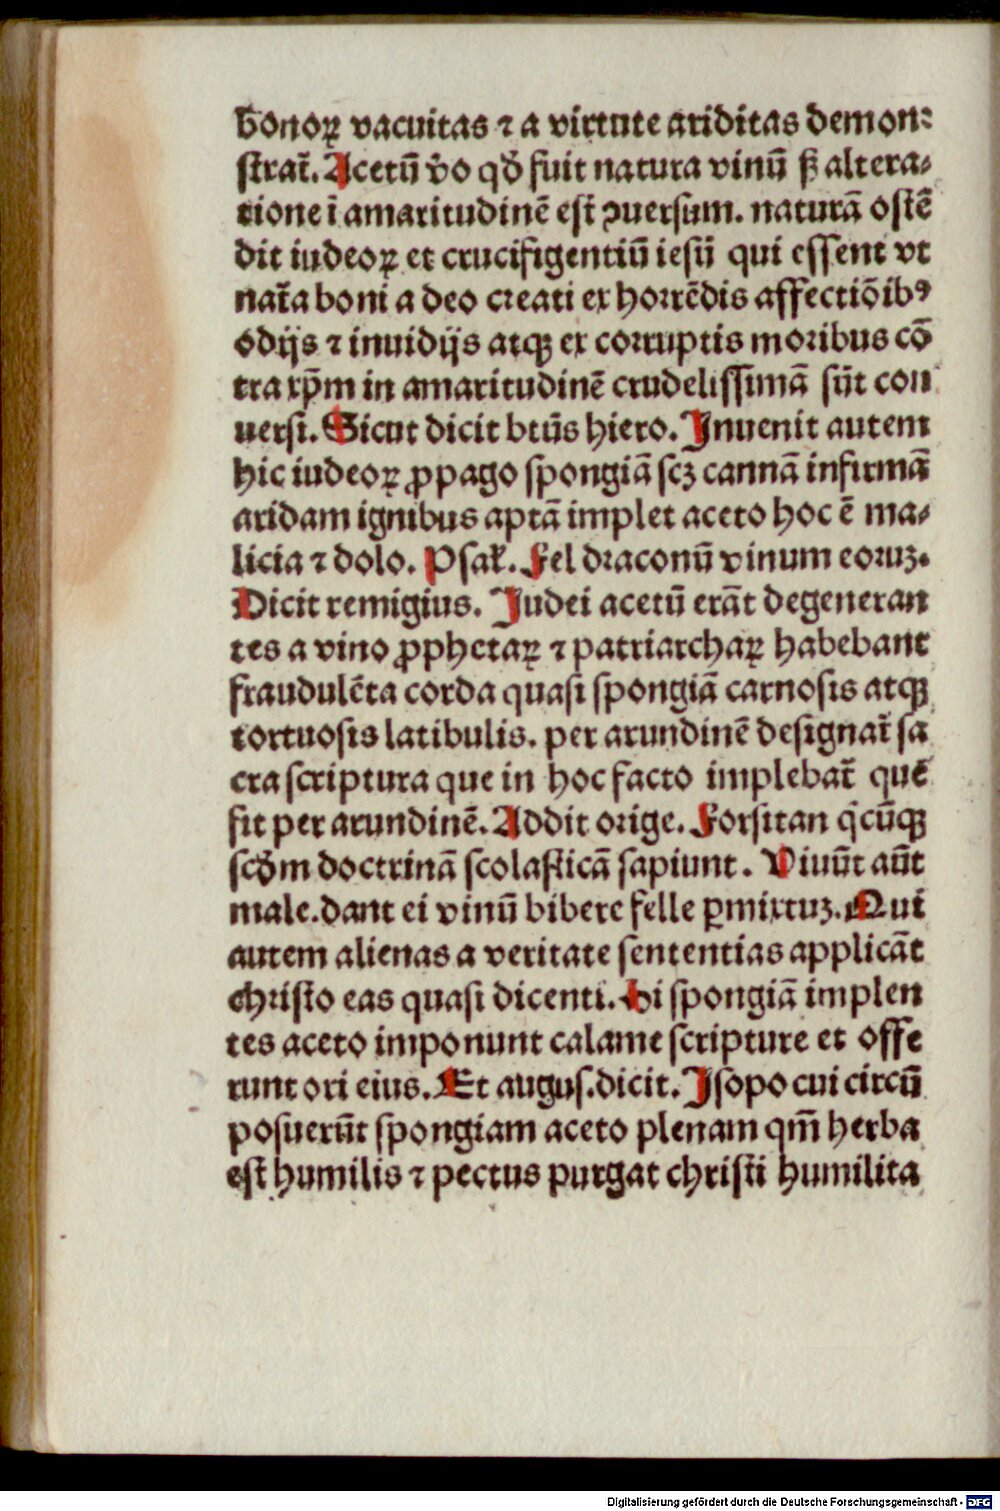 bonoꝝ vacuitas ⁊ a virtute ariditas demon⸗
strat̄. Acetū v̄o qd̄ fuit natura vinū ẜ altera⸗
tione ī amaritudinē est ꝯuersum. naturā ostē
dit iudeoꝝ et crucifigentiū iesū qui essent vt
nat̄a boni a deo creati ex horrēdis affectiōibꝰ
odijs ⁊ inuidijs atqꝫ ex corruptis moribus cō
tra xp̄m in amaritudinē crudelissimā sūt con
uersi. Sicut dicit btūs hiero. Inuenit autem
hic iudeoꝝ ꝓpago spongiā scꝫ cannā infirmā
aridam ignibus aptā implet aceto hoc ē ma⸗
licia ⁊ dolo. Psal̄. Fel draconū vinum eoruꝫ.
Dicit remigius. Iudei acetū erāt degeneran
tes a vino ꝓphetaꝝ ⁊ patriarchaꝝ habebant
fraudulēta corda quasi spongiā carnosis atqꝫ
tortuosis latibulis. per arundinē designat̄ sa
cra scriptura que in hoc facto implebat̄ quē
fit per arundinē. Addit orige. Forsitan q̇cūqꝫ
scd̄m doctrinā scolasticā sapiunt. Uiuūt aūt
male. dant ei vinū bibere felle ꝑmixtuꝫ. Qui
autem alienas a veritate sententias applicāt
christo eas quasi dicenti. Hi spongiā implen
tes aceto imponunt calame scripture et offe
runt ori eius. Et augus. dicit. Isopo cui circū
posuerūt spongiam aceto plenam qm̄ herba
est humilis ⁊ pectus purgat christi humilita
Digitalisierung gefördert durch die Deutsche Forschungsgemeinschaft - DFG